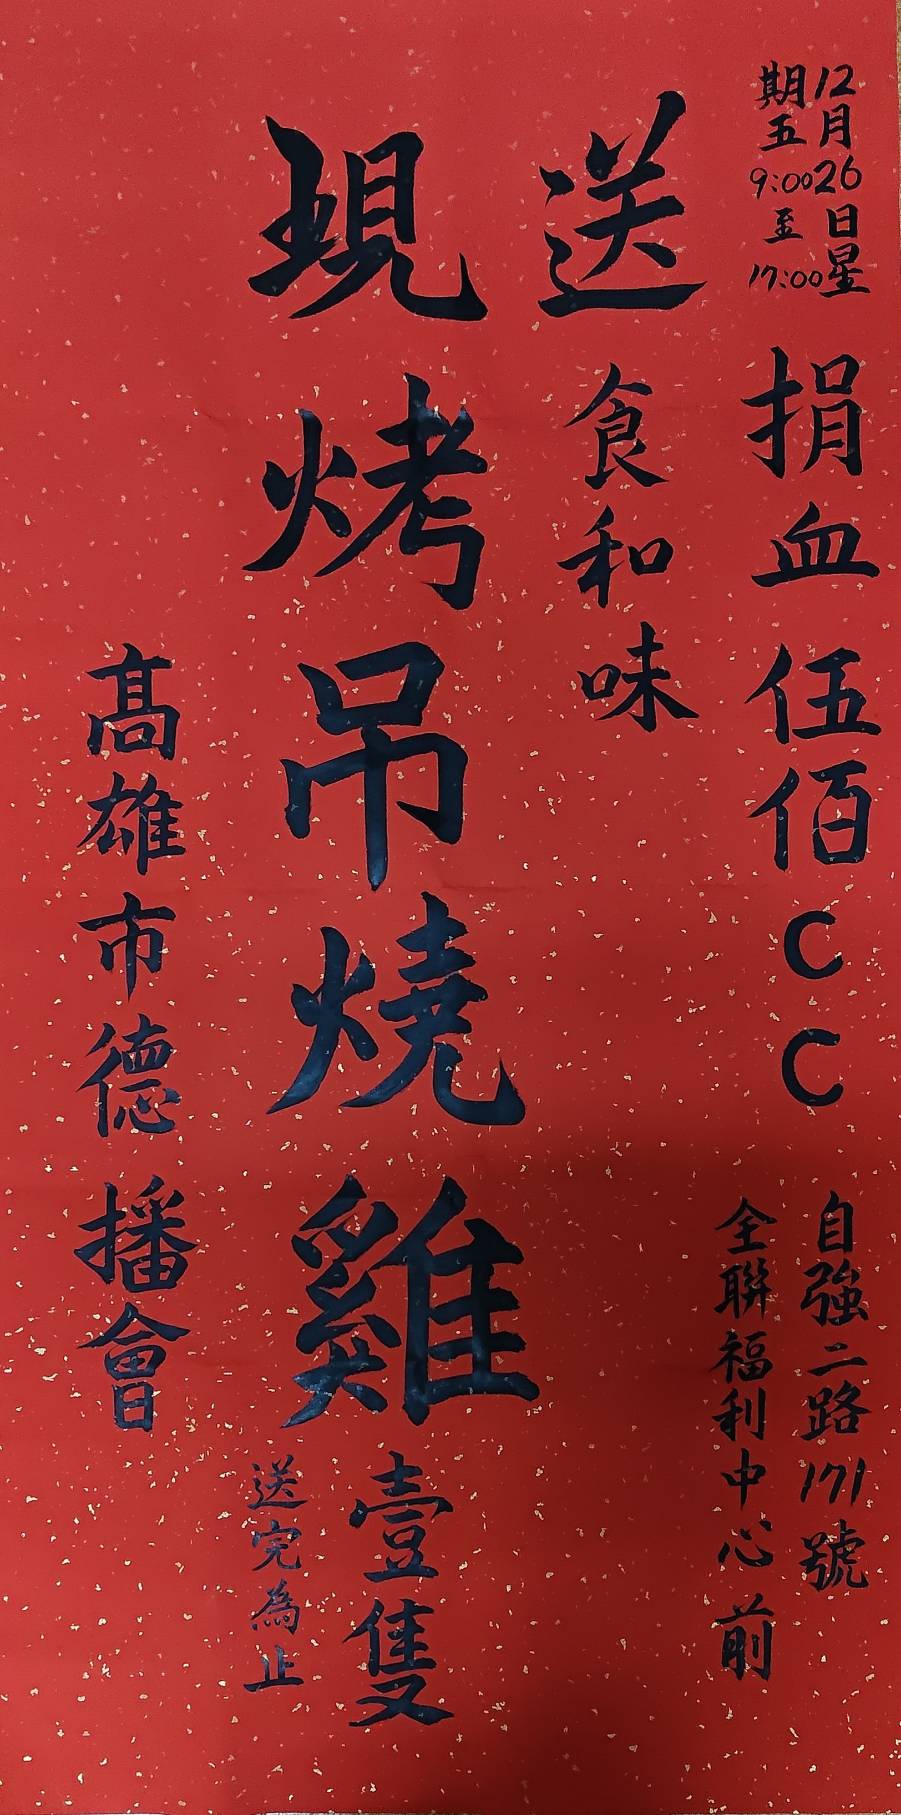 12月26日星
期五9:00至17:00
捐血伍佰CC
自強二路171號
全聯福利中心前
送
食和味
現烤吊燒雞
壹隻
送完為止
高雄市德播會